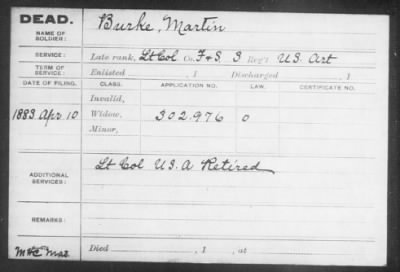 DEAD. Burke, Martin
NAME OF SOLDIER:
SERVICE: Late rank, Lt Col Co. F & S, 3 Reg't U.S. Art
TERM OF SERVICE: Enlisted , 1 Discharged , 1
DATE OF FILING. CLASS. APPLICATION NO. LAW. CERTIFICATE NO.
Invalid,
1883 Apr. 10 Widow, 302.976 0
Minor,
ADDITIONAL SERVICES: Lt Col U.S.A Retired
REMARKS:
Died , 1 , at